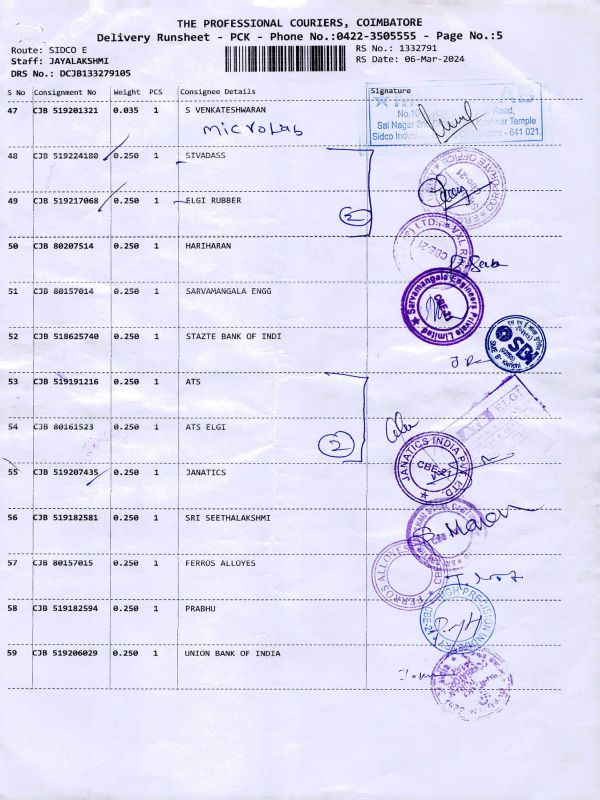 THE PROFESSIONAL COURIERS, COIMBATORE
Delivery Runsheet - PCK - Phone No.:0422-3505555 - Page No.:5
Route: SIDCO E
RS No.: 1332791
Staff: JAYALAKSHMI
RS Date: 06-Mar-2024
DRS No.: DCJB133279105
S No Consignment No Weight PCS Consignee Details Signature
47 CJB 519201321 0.035 1 S VENKATESHWARAN
MicroLab
No.10 Road,
Sai Nagar Temple
Sidco Indus - 641 021.
48 CJB 519224180 0.250 1 SIVADASS
CORPORATE OFFICE
49 CJB 519217068 0.250 1 ELGI RUBBER
2
50 CJB 80207514 0.250 1 HARIHARAN
LTD., VXL
CBE-21
51 CJB 80157014 0.250 1 SARVAMANGALA ENGG
Sarvamangala Engineers Private Limited
CBE-21
52 CJB 518625740 0.250 1 STAZTE BANK OF INDI
SBI
53 CJB 519191216 0.250 1 ATS
ELGI
54 CJB 80161523 0.250 1 ATS ELGI
2
55 CJB 519207435 0.250 1 JANATICS
JANATICS INDIA PVT. LTD.
CBE-21
56 CJB 519182581 0.250 1 SRI SEETHALAKSHMI
57 CJB 80157015 0.250 1 FERROS ALLOYES
FERROS ALLOYES
58 CJB 519182594 0.250 1 PRABHU
HIGH PRECISION
CBE-21
59 CJB 519206029 0.250 1 UNION BANK OF INDIA